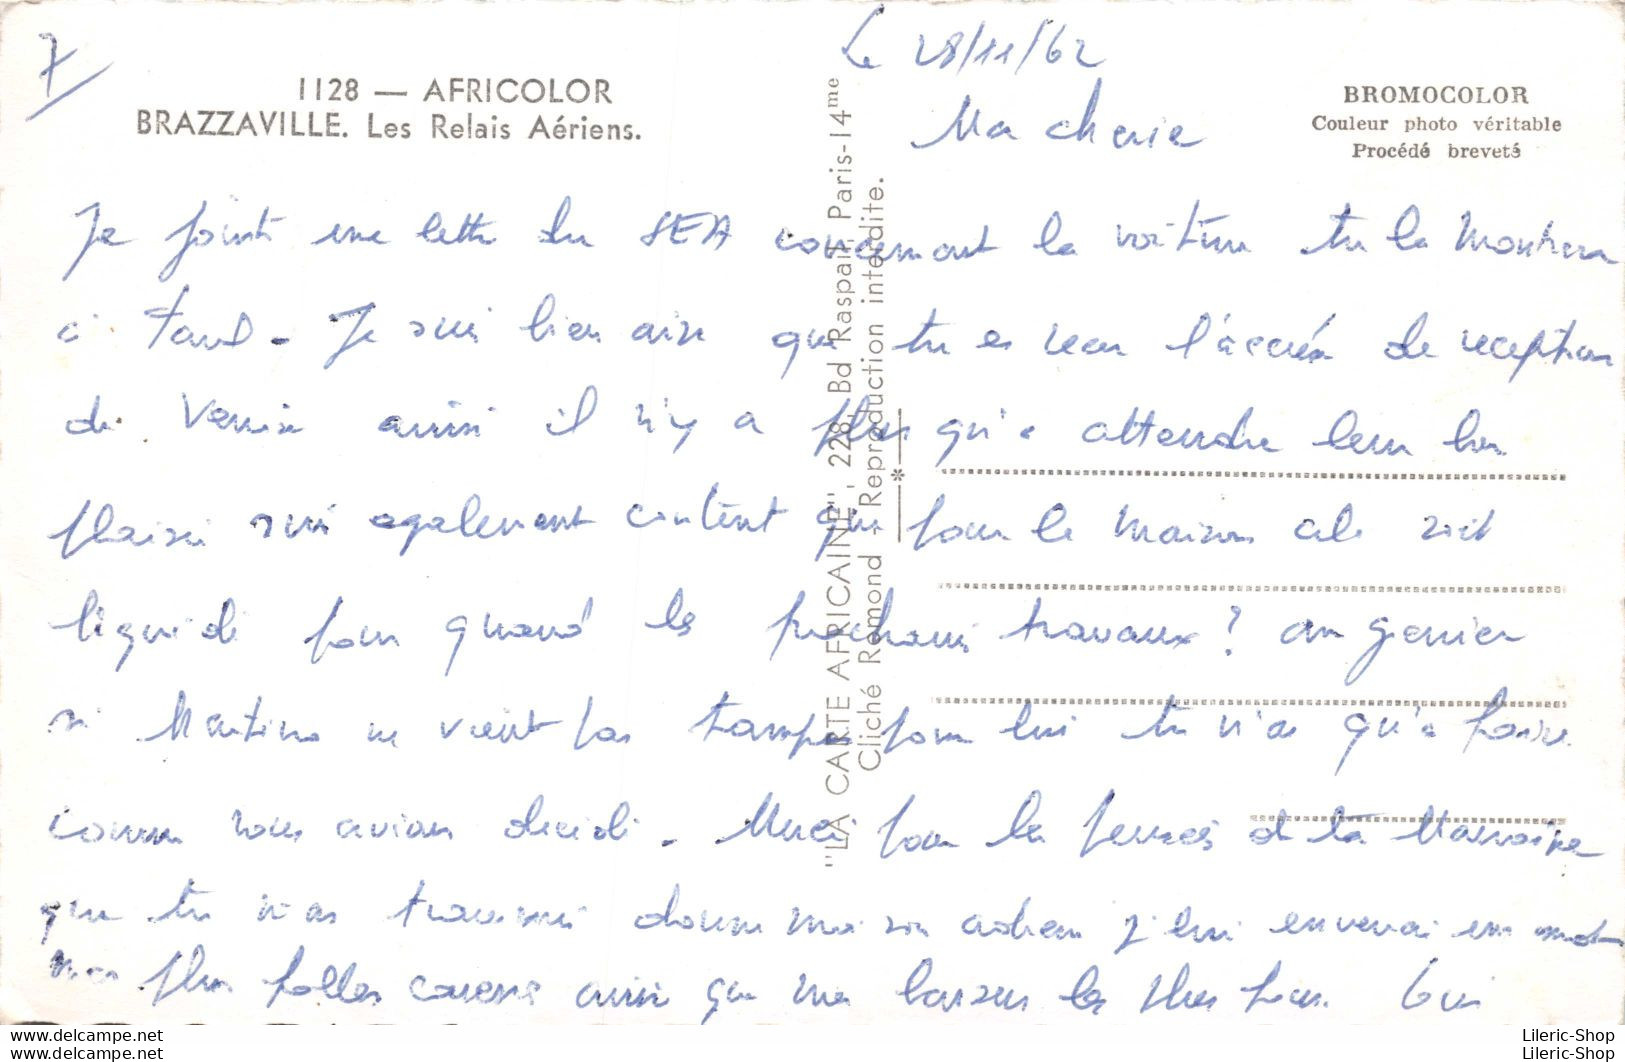 7
1128 — AFRICOLOR
BRAZZAVILLE. Les Relais Aériens.
"LA CARTE AFRICAINE", 228, Bd Raspail, Paris-14me
Cliché Remond - Reproduction interdite.
BROMOCOLOR
Couleur photo véritable
Procédé breveté
Le 28/11/62
Ma cherie
Je joint une lettre du SEA concernant la voiture tu la montrera
à Fand. Je suis bien aise que tu es reçu l'accusé de reception
de Venise ainsi il n'y a plus qu'a attendre leur bon
plaisir suis egalement content que pour la maison cela soit
liquidé pour quand les prochains travaux ? en janvier
si Martino ne vient pas tampis pour lui tu n'as qu'a faire
comme nous avions decidé. Merci pour les pensées de ta Marraine
que tu m'as transmis donne moi son adresse j'lui enverrai un mot
mes plus folles caresses ainsi que mes baisers les plus fous. Gui
Lileric-Shop
Lileric-Shop
www.delcampe.net
www.delcampe.net